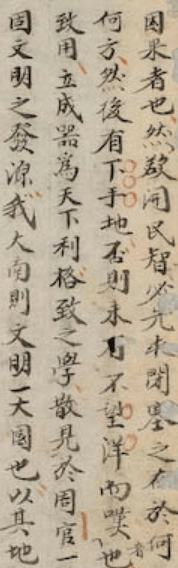 因果者也然啟開民智必先求閉塞之在於何
何方然後有下手地否則未有不望洋而嘆者也
致用立成器為天下利格致之學散見於周官一
固文明之發源我大南則文明一大國也以其地